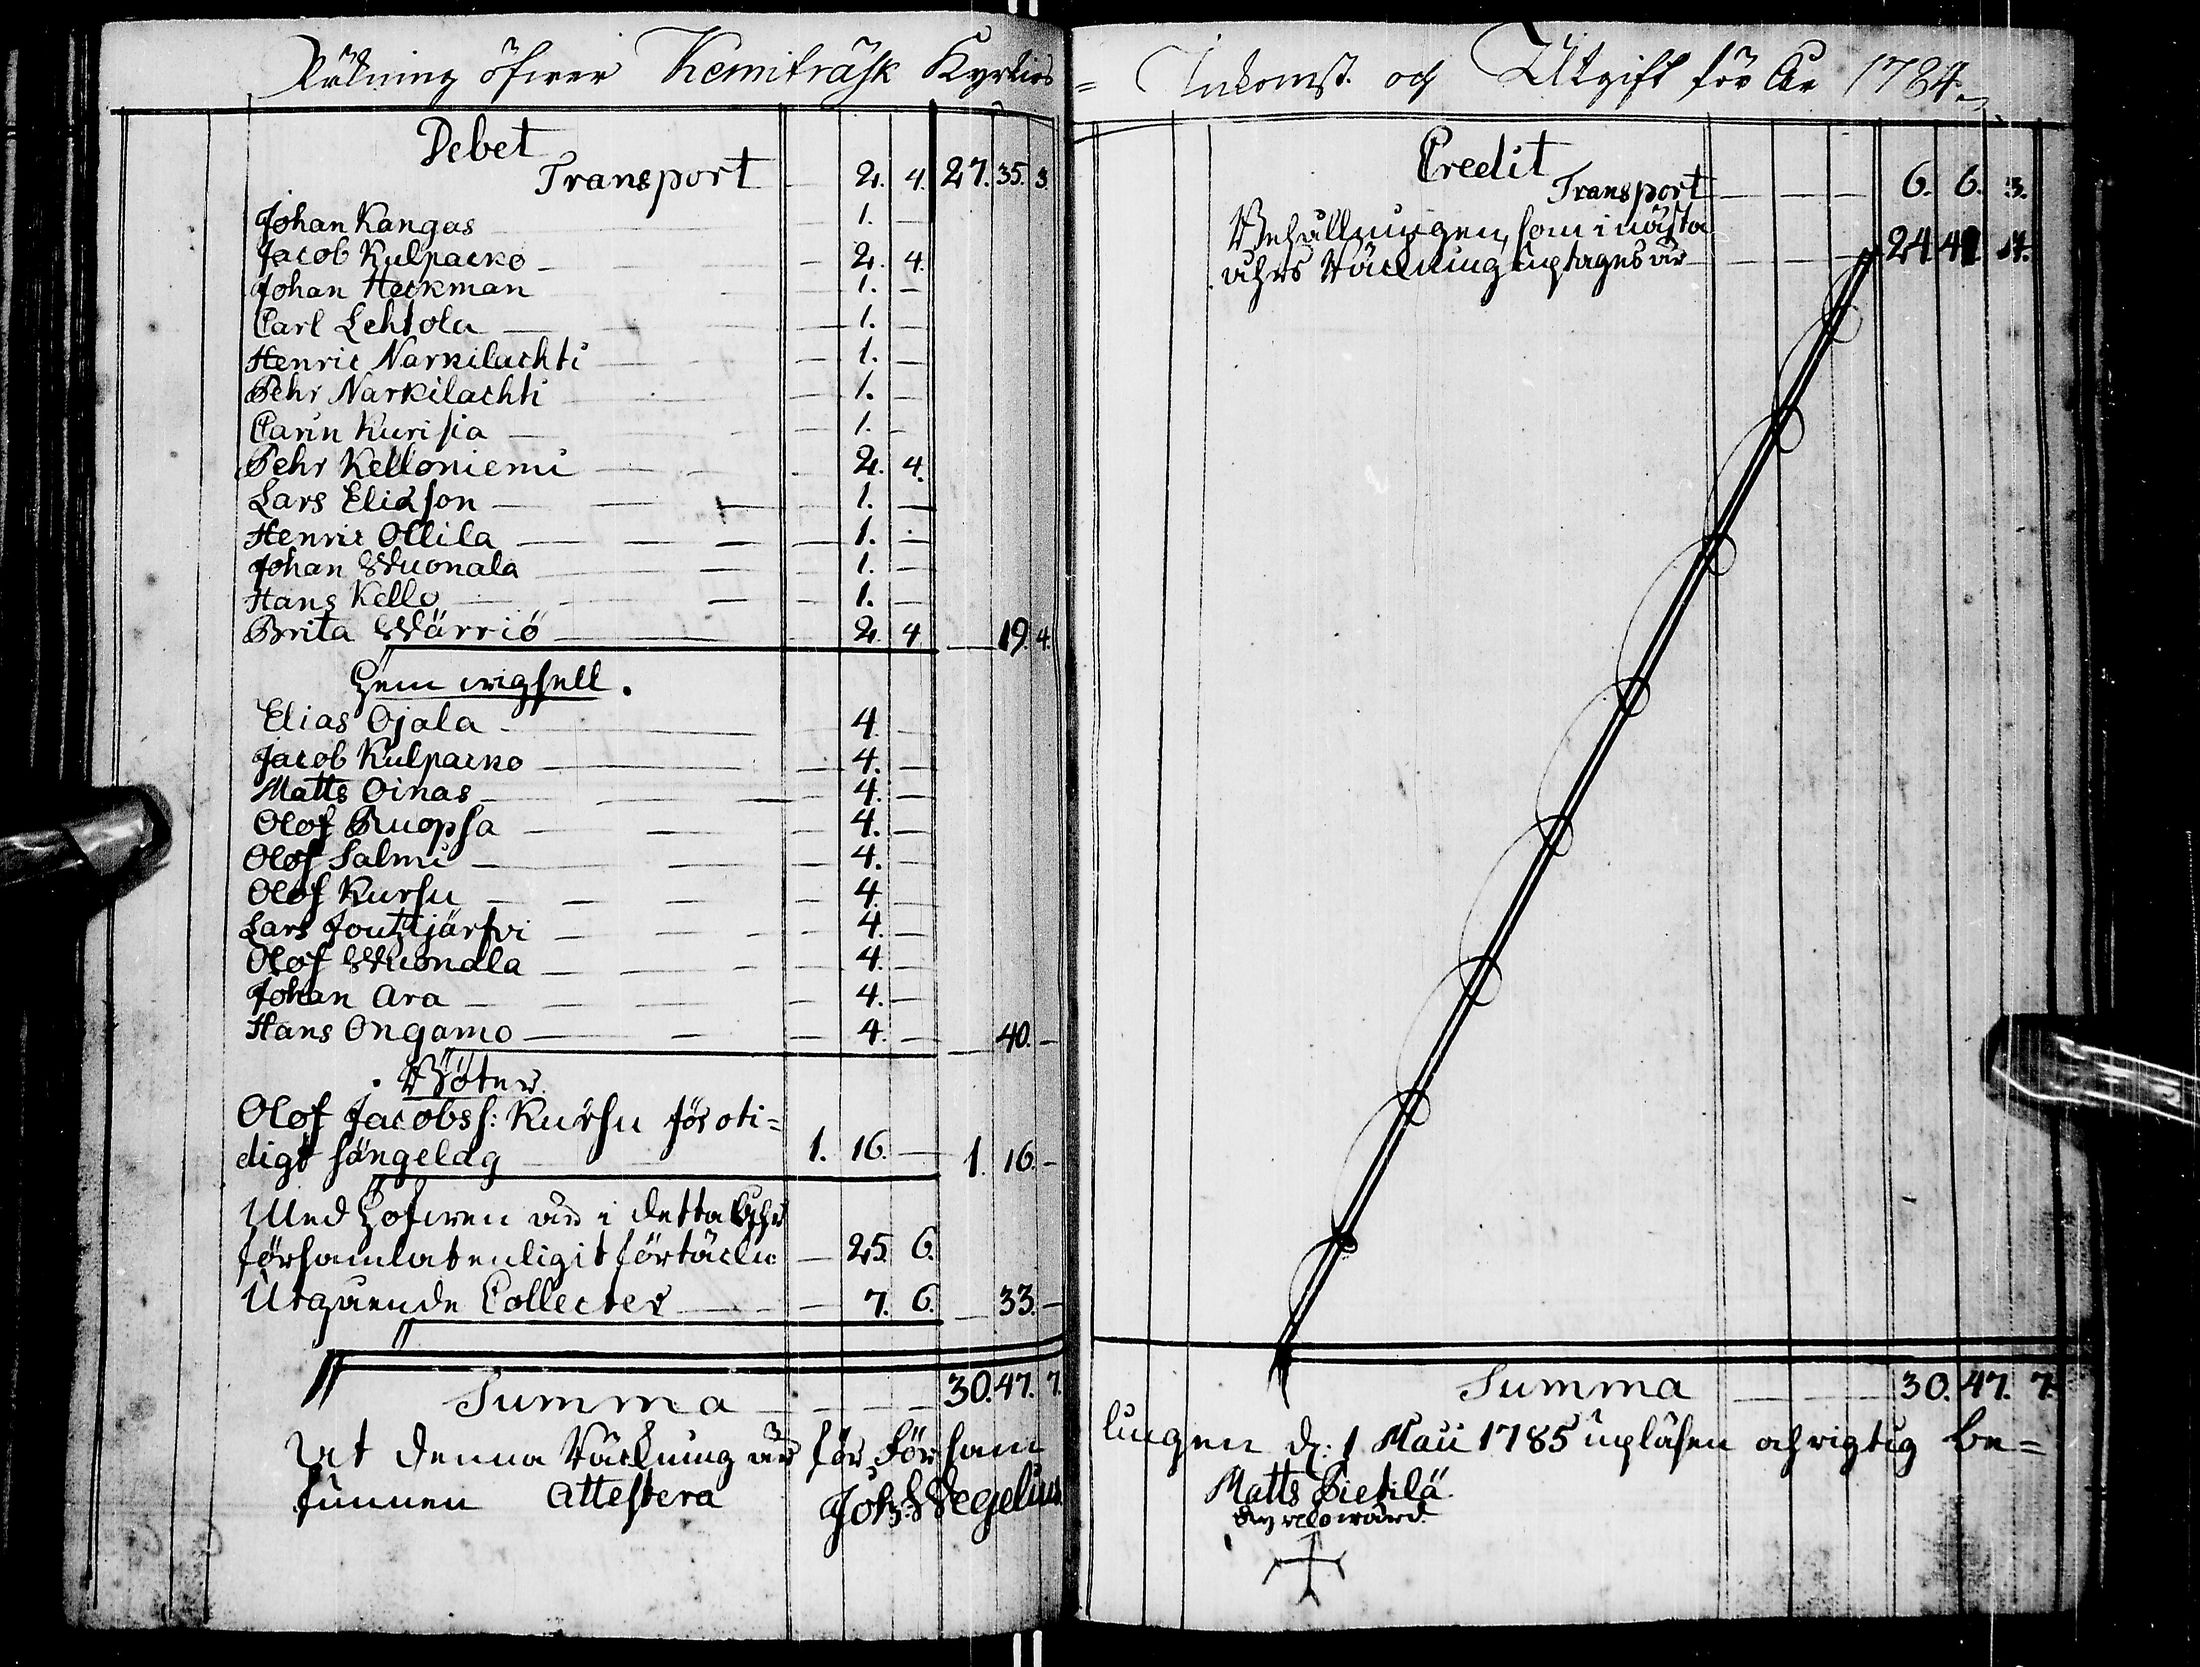 Räkning öfwer Kemiträsk Kyrkios
Debet
Transport 2. 4. 27. 35. 3.
Johan Kangas 1. —
Jacob Kulpacko 2. 4.
Johan Heckman 1. —
Carl Lehtola 1. —
Henric Narkilachti 1. —
Pehr Narkilachti 1. —
Carin Kurisia 1. —
Pehr Kelloniemi 2. 4.
Lars Eliason 1. —
Henric Ollila 1. —
Johan Wuonala 1. —
Hans Kello 1. —
Brita Wärriö 2. 4. — 19. 4.
Hem wigsell.
Elias Ojala 4. —
Jacob Kulpacko 4. —
Matts Oinas 4. —
Olof Ruopsa 4. —
Olof Salmi 4. —
Olof Kursu 4. —
Lars Joutzijärfvi 4. —
Olof Wuonala 4. —
Johan Ara 4. —
Hans Ongamo 4. — — 40. —
Böter.
Olof Jacobss: Kursu för oti=
digt sängelag 1. 16. — 1. 16. —
Med Hofwen är i detta åhr
församlat enligit förtäckn 25. 6.
Utgående Collecter 7. 6. — 33. —
Summa 30. 47. 7.
At denna Räckning är för Försam
funnen Attestera Joh: Wegelius
= Inkomst och Utgift för År 1784.
Credit
Transport 6. 6. 3.
Behållningen, som i nästa
åhrs Räckning uptages är 24 41 4.
Summa 30. 47. 7.
lingen d: 1 Maii 1785 upläsen och rigtig be=
Matts Pietilä
Kyrckowärd.